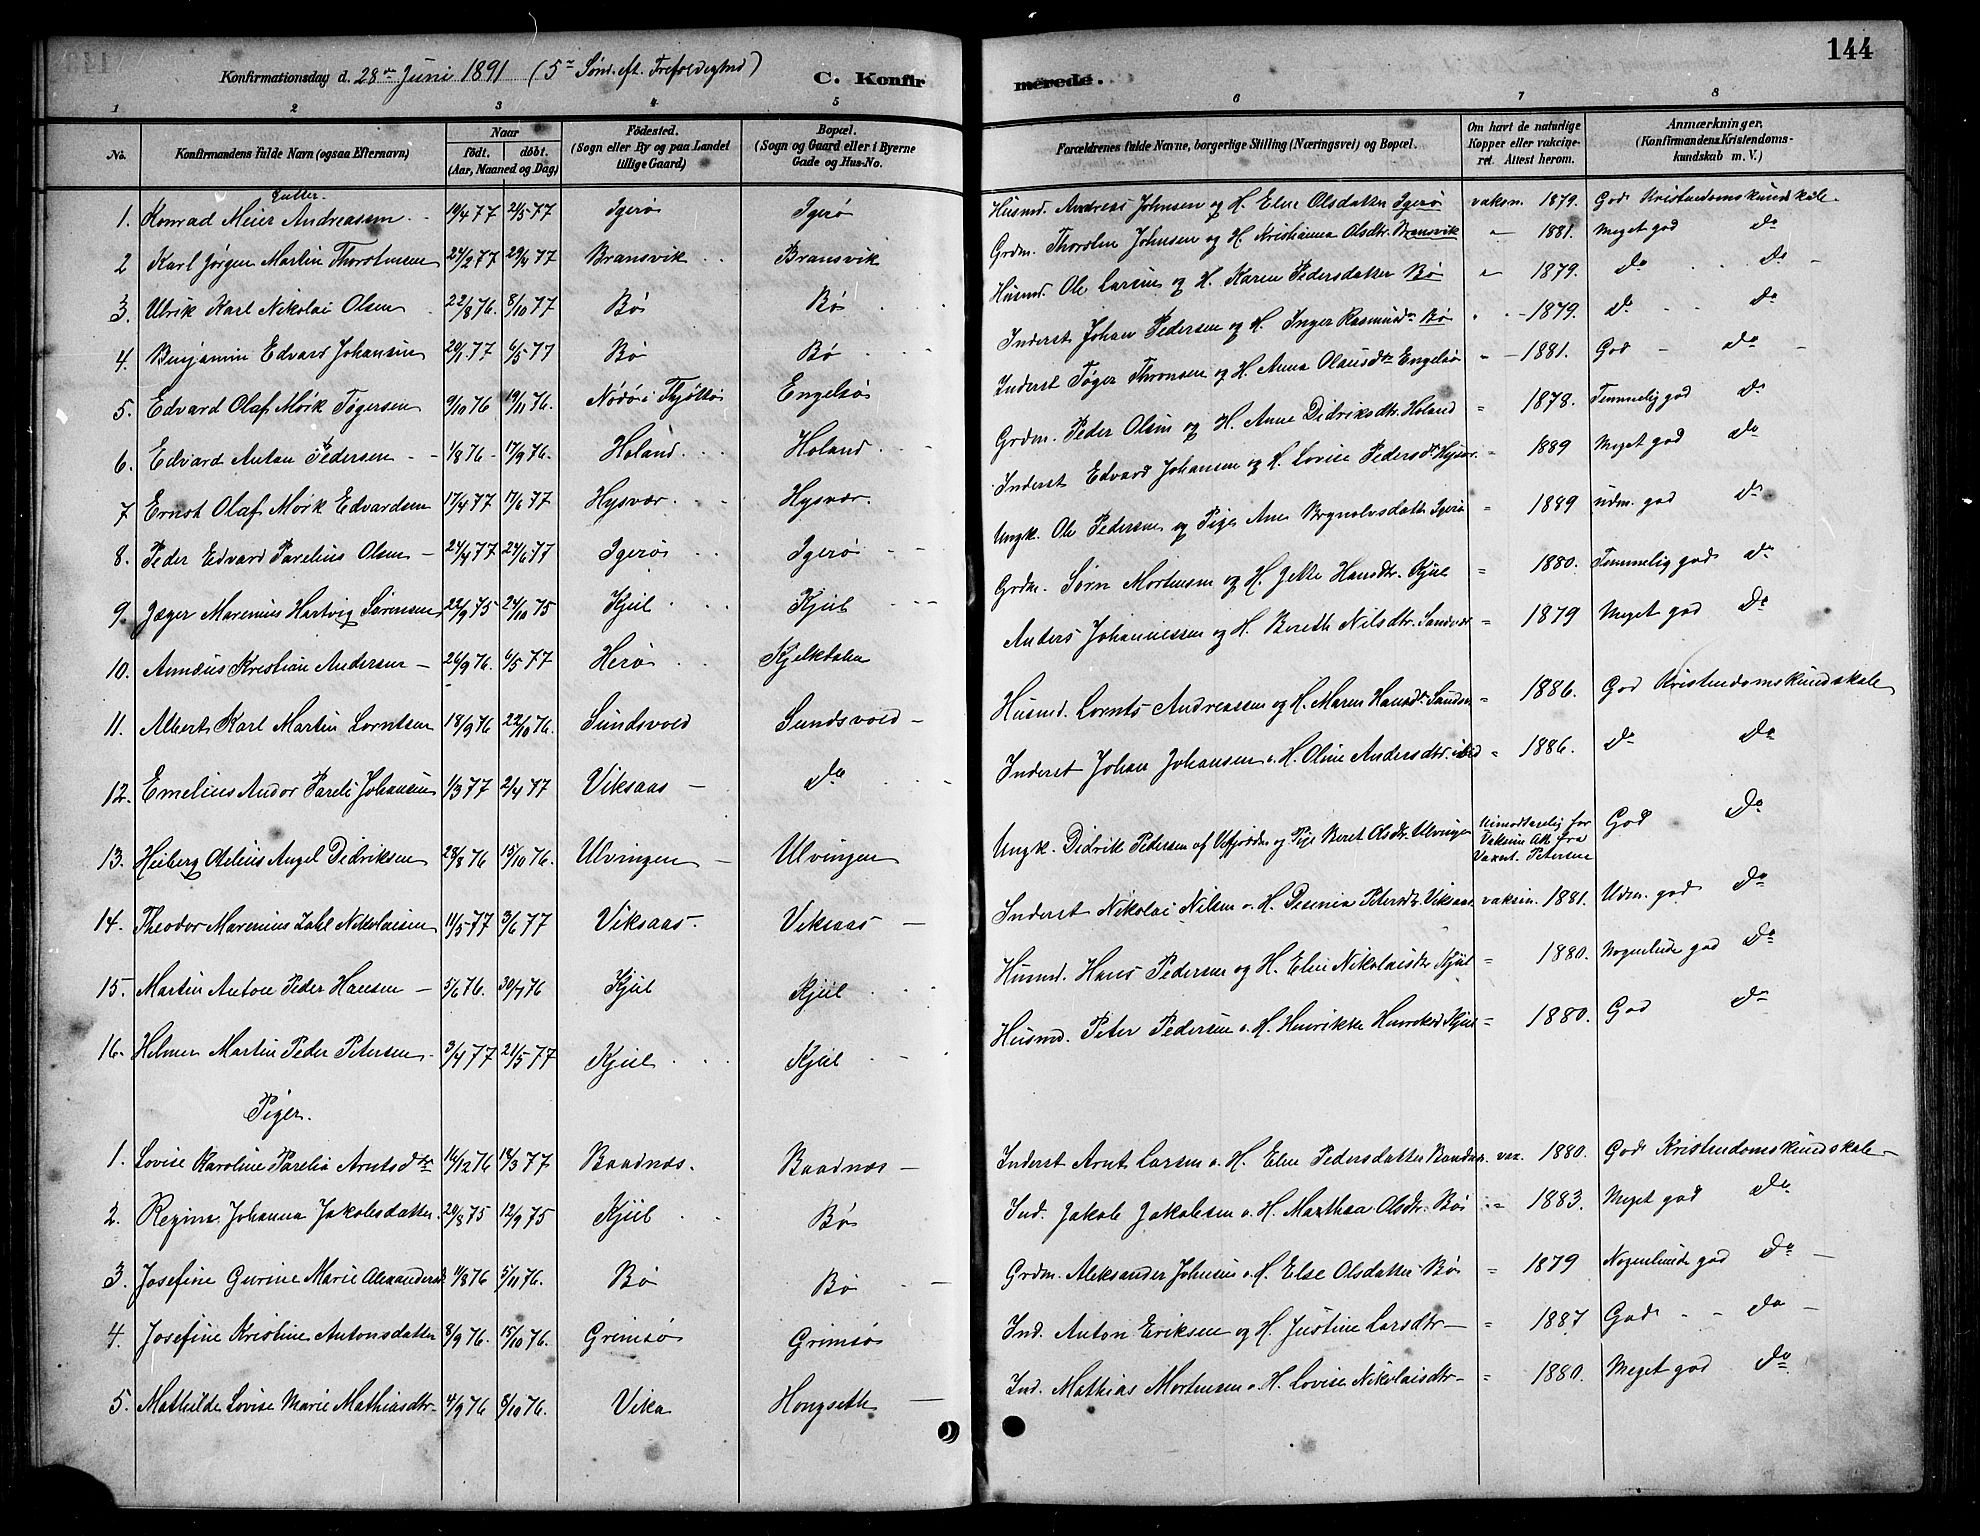 144
Konfirmationsdag d. 28de Juni 1891 (5te Sønd. eft. Trefoldighed) C. Konfirmerede.
1 2 3 4 5 6 7 8
No. Konfirmandens fulde Navn (ogsaa Efternavn) Naar født. døbt. (Aar, Maaned og Dag) Fødested. (Sogn eller By og paa Landet tillige Gaard) Bopæl. (Sogn og Gaard eller i Byerne Gade og Hus-No. Forældrenes fulde Navne, borgerlige Stilling (Næringsvei) og Bopæl. Om havt de naturlige Kopper eller vakcineret. Attest herom. Anmærkninger. (Konfirmandens Kristendomskundskab m. V.)
Gutter.
1. Konrad Meier Andreassen 19/4 77 2/5 77 Igerø Igerø Husmd. Andreas Johnsen og H. Eline Olsdatter Igerø vaksn. 1879. God Kristendomskundskab
2 Karl Jørgen Martin Thorstensen 24/2 77 29/4 77 Bransvik Bransvik Grdm. Thorsten Johnsen og H. Kristianna Olsdtr. Bransvik " 1881. Meget god do
3. Ulrik Karl Nikolai Olsen 22/8 76. 8/10 77 Bø Bø Husmd. Ole Larsen og H. Karen Pedersdatter Bø " 1879. do do
4. Benjamin Edvard Johansen 20/1 77 6/5 77 Bø Bø Inderst Johan Pedersen og H. Inger Rasmusdr Bø " 1879. do do
5. Edvard Olaf Mørk Tøgersen 9/10 76 19/11 76. Nødø i Thjøttø Engelsø Inderst Tøger Thronsen og H. Anna Olausdtr Engelsø " 1881. God do
6. Edvard Anton Pedersen 1/8 76 17/9 76. Holand Holand Grdm. Peder Olsen og H. Anne Didriksdtr. Holand " 1878. Temmelig god do
7 Ernst Olaf Mørk Edvardsen 17/4 77 17/6 77 Hysvær Hysvær. Inderst Edvard Johansen og H. Lovise Pedersdr Hysvær " 1889 Meget god do
8. Peder Edvard Parelius Olsen 24/4 77 24/6 77 Igerø Igerø Ungk. Ole Pedersen og Pige Ane Brynolvsdatter Igerø " 1889 udm. god do
9. Jæger Marenius Hartvig Sørensen 22/9 75 24/10 75 Kjul Kjul Grdm. Sørn Mortensen og H. Jekte Hansdtr. Kjul " 1880. Temmelig god do
10. Annæus Kristian Andersen 26/9 76. 6/5 77 Herø Kjelkbalen Anders Johannessen og H. Bereth Nilsdtr. Sandvær " 1879 Meget god do
11. Albert Karl Martin Lorntsen 18/9 76 22/10 76. Sundsvold Sundsvold Husmd. Lornts Andreassen og H. Maren Hansdr " 1886. God Kristendomskundskab
12. Emelius Andor Pareli Johansen 1/3 77 2/4 77 Viksaas do Inderst Johan Johansen o. H. Oline Andersdtr. ibid " 1886. do do
13. Heiberg Otelius Angel Didriksen 28/8 76 15/10 76. Ulvingen Ulvingen Ungk. Didrik Pedersen af Vefjorden og Pige Beret Olsdtr. Ulvingen Uimodtagelig for Vaksine Att. fra Vaxent. Petersen God do
14. Theodor Marenius Zahl Nikolaisen 11/5 77 3/6 77 Viksaas. Viksaas Inderst Nikolai Nilsen o. H. Pesenia Petersdtr. Viksaas vaksin. 1881. Udm. god do
15. Martin Anton Peder Hansen 5/6 76. 30/7 76 Kjul Kjul Husmd. Hans Pedersen og H. Eline Nikolaisdtr Kjul " 1880. Nogenlunde god do
16. Helmer Martin Peder Petersen 3/4 77 21/5 77 Kjul Kjul Husmd. Peter Pedersen o. H. Henrikke Kjul " 1880. God do
Piger.
1. Lovise Karoline Parelia Arntsdtr 16/12 76 18/3 77 Baadnæs. Baadnæs Inderst Arnt Larsen o. H. Eline Pedersdatter Baadnæs. vax. 1880. God Kristendomskundskab
2. Regine Johanna Jakobsdatter. 20/8 75 12/9 75 Kjul Bø Ind. Jakob Jakobsen o. H. Marthaa Olsdtr. Bø " 1883. Meget god do
3. Josefine Gurine Marie Alexandersd 1/8 76 5/11 76. Bø Bø Grdm. Aleksander Johnsen o. H. Else Olsdatter Bø " 1879 Nogenlunde god do
4 Josefine Kristine Antonsdatter 8/9 76. 15/10 76. Grimsø Grimsø Ind. Anton Eriksen og H. Justine Larsdtr " 1887 God do
5. Mathilde Lovise Marie Mathiasdtr 4/9 76 8/10 76. Vika Hongseth Ind. Mathias Mortensen o. H. Lovise Nikolaisdtr " 1880. Meget god do